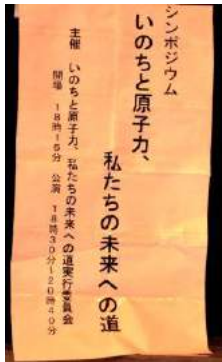 シンポジウム
いのちと原子力、
私たちの未来への道
主催 いのちと原子力、私たちの未来への道実行委員会
開場 18時15分 公演 18時30分~20時40分